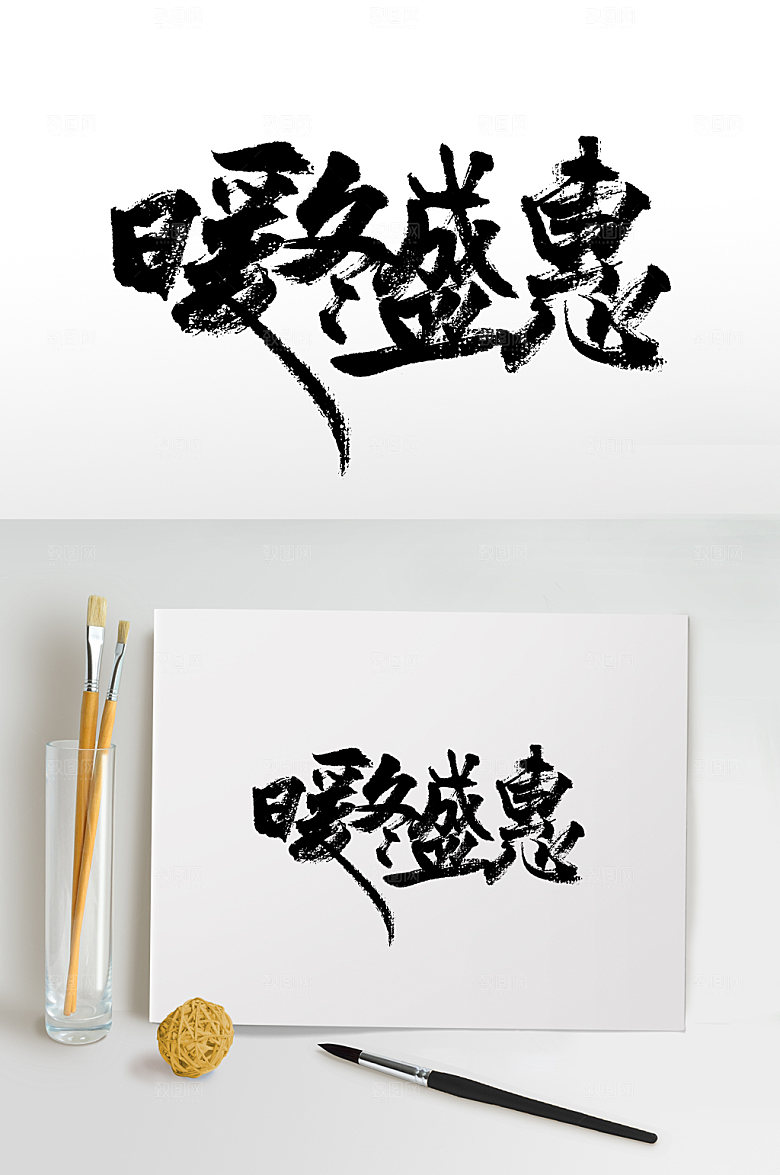 暖冬盛惠
暖冬盛惠